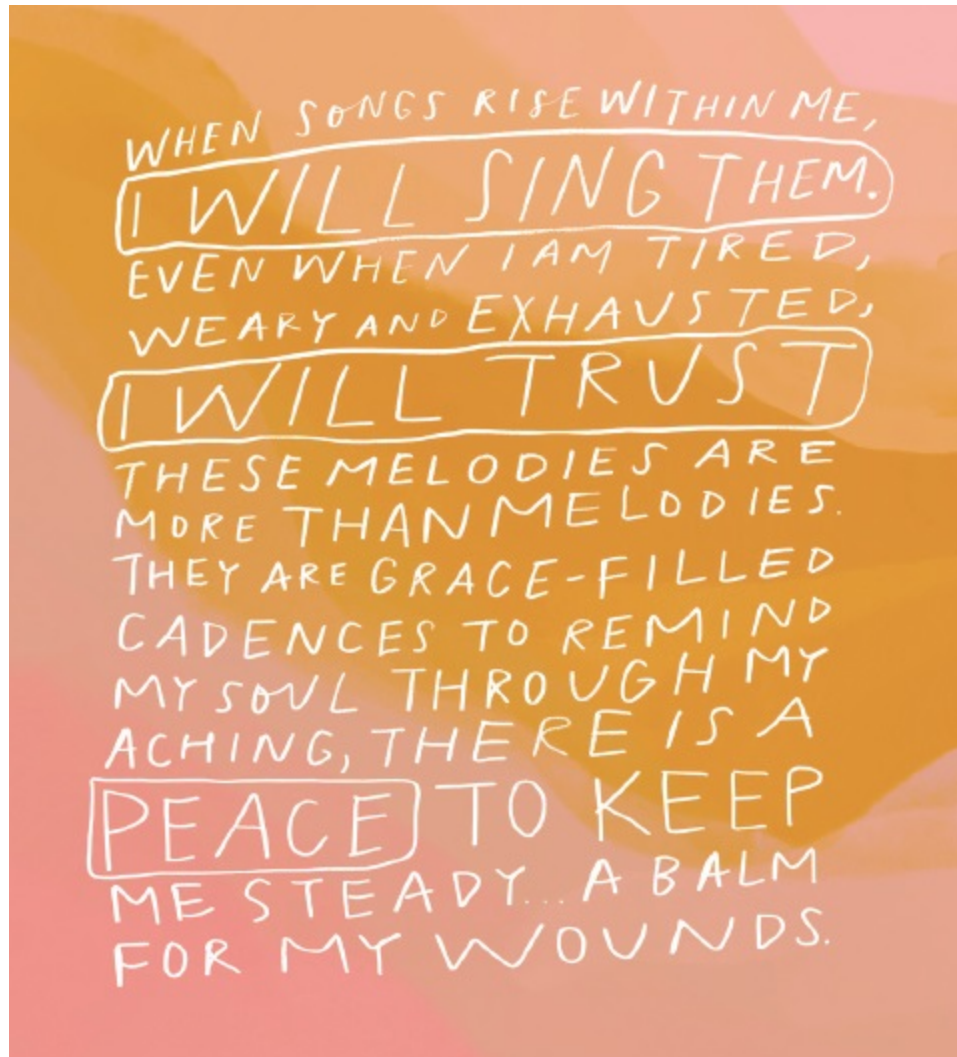 WHEN SONGS RISE WITHIN ME,
I WILL SING THEM.
EVEN WHEN I AM TIRED,
WEARY AND EXHAUSTED,
I WILL TRUST
THESE MELODIES ARE
MORE THAN MELODIES.
THEY ARE GRACE-FILLED
CADENCES TO REMIND
MY SOUL THROUGH MY
ACHING, THERE IS A
PEACE TO KEEP
ME STEADY... A BALM
FOR MY WOUNDS.